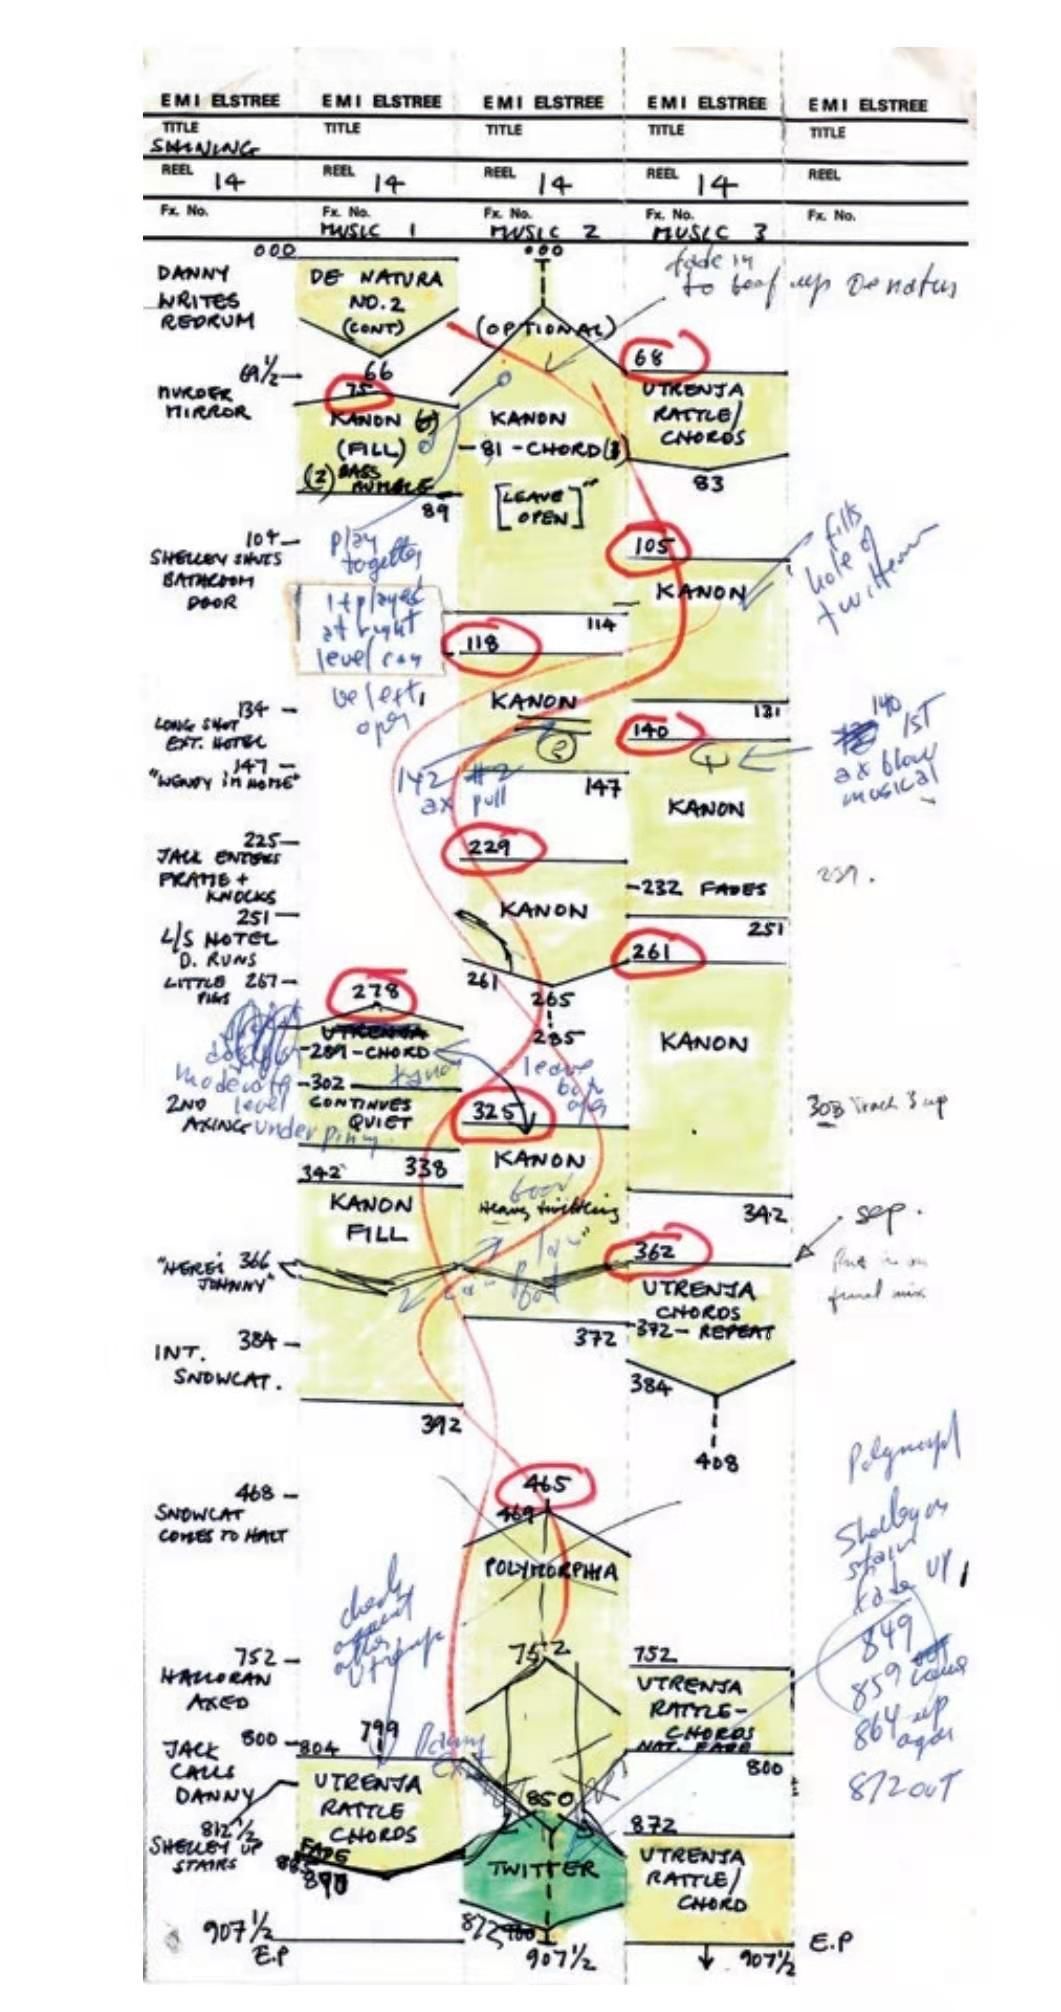 EMI ELSTREE EMI ELSTREE EMI ELSTREE EMI ELSTREE EMI ELSTREE
TITLE TITLE TITLE TITLE TITLE
SHINING
REEL 14 REEL 14 REEL 14 REEL 14 REEL
Fx. No. Fx. No. Fx. No. Fx. No. Fx. No.
MUSIC 1 MUSIC 2 MUSIC 3
000
DANNY
WRITES
REDRUM
69½
MURDER
MIRROR
104
SHELLEY SHUTS
BATHROOM
DOOR
134
LONG SHOT
EXT. HOTEL
147
"WENDY I'M HOME"
225
JACK ENTERS
FRAME +
KNOCKS
251
L/S HOTEL
D. RUNS
LITTLE 267
PIGS
moderate
level
2ND
AXING
under
"HERE'S 366
JOHNNY"
384
INT.
SNOWCAT.
468
SNOWCAT
COMES TO HALT
752
HALLORAN
AXED
800
JACK
CALLS
DANNY
812½
SHELLEY UP
STAIRS
907½
E.P
DE NATURA
NO.2
(CONT)
66
75
KANON
(FILL)
(2) BASS
RUMBLE
89
play
together
If played
at right
level can
be left
open
142 #2
ax pull
278
UTRENJA
289-CHORD
Kanon
302
CONTINUES
QUIET
338
342
KANON
FILL
392
check
799
804
UTRENJA
RATTLE
CHORDS
FADE
890
000
(OPTIONAL)
KANON
81-CHORD(3)
[LEAVE
OPEN]
114
118
KANON
2
147
229
KANON
261
265
285
leave
both
open
325
KANON
good
Heavy twittering
372
465
469
POLYMORPHIA
752
Danny
850
TWITTER
872
900
907½
fade in
to beef up De natura
68
UTRENJA
RATTLE/
CHORDS
83
105
KANON
131
140
KANON
232 FADES
251
261
KANON
342
362
UTRENJA
CHORDS
372-REPEAT
384
408
752
UTRENJA
RATTLE-
CHORDS
NAT. FADE
800
872
UTRENJA
RATTLE/
CHORD
907½
fills
hole of
twitterer
140
1ST
ax blow
musical
239.
303 Track 3 up
sep.
Put in on
final mix
Polymorph
Shelley on
stairs
fade up
849
859
864 up
again
872 out
E.P